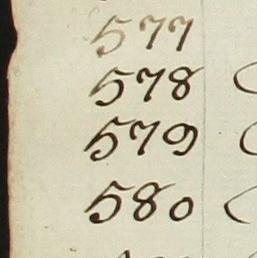 577
578
579
580